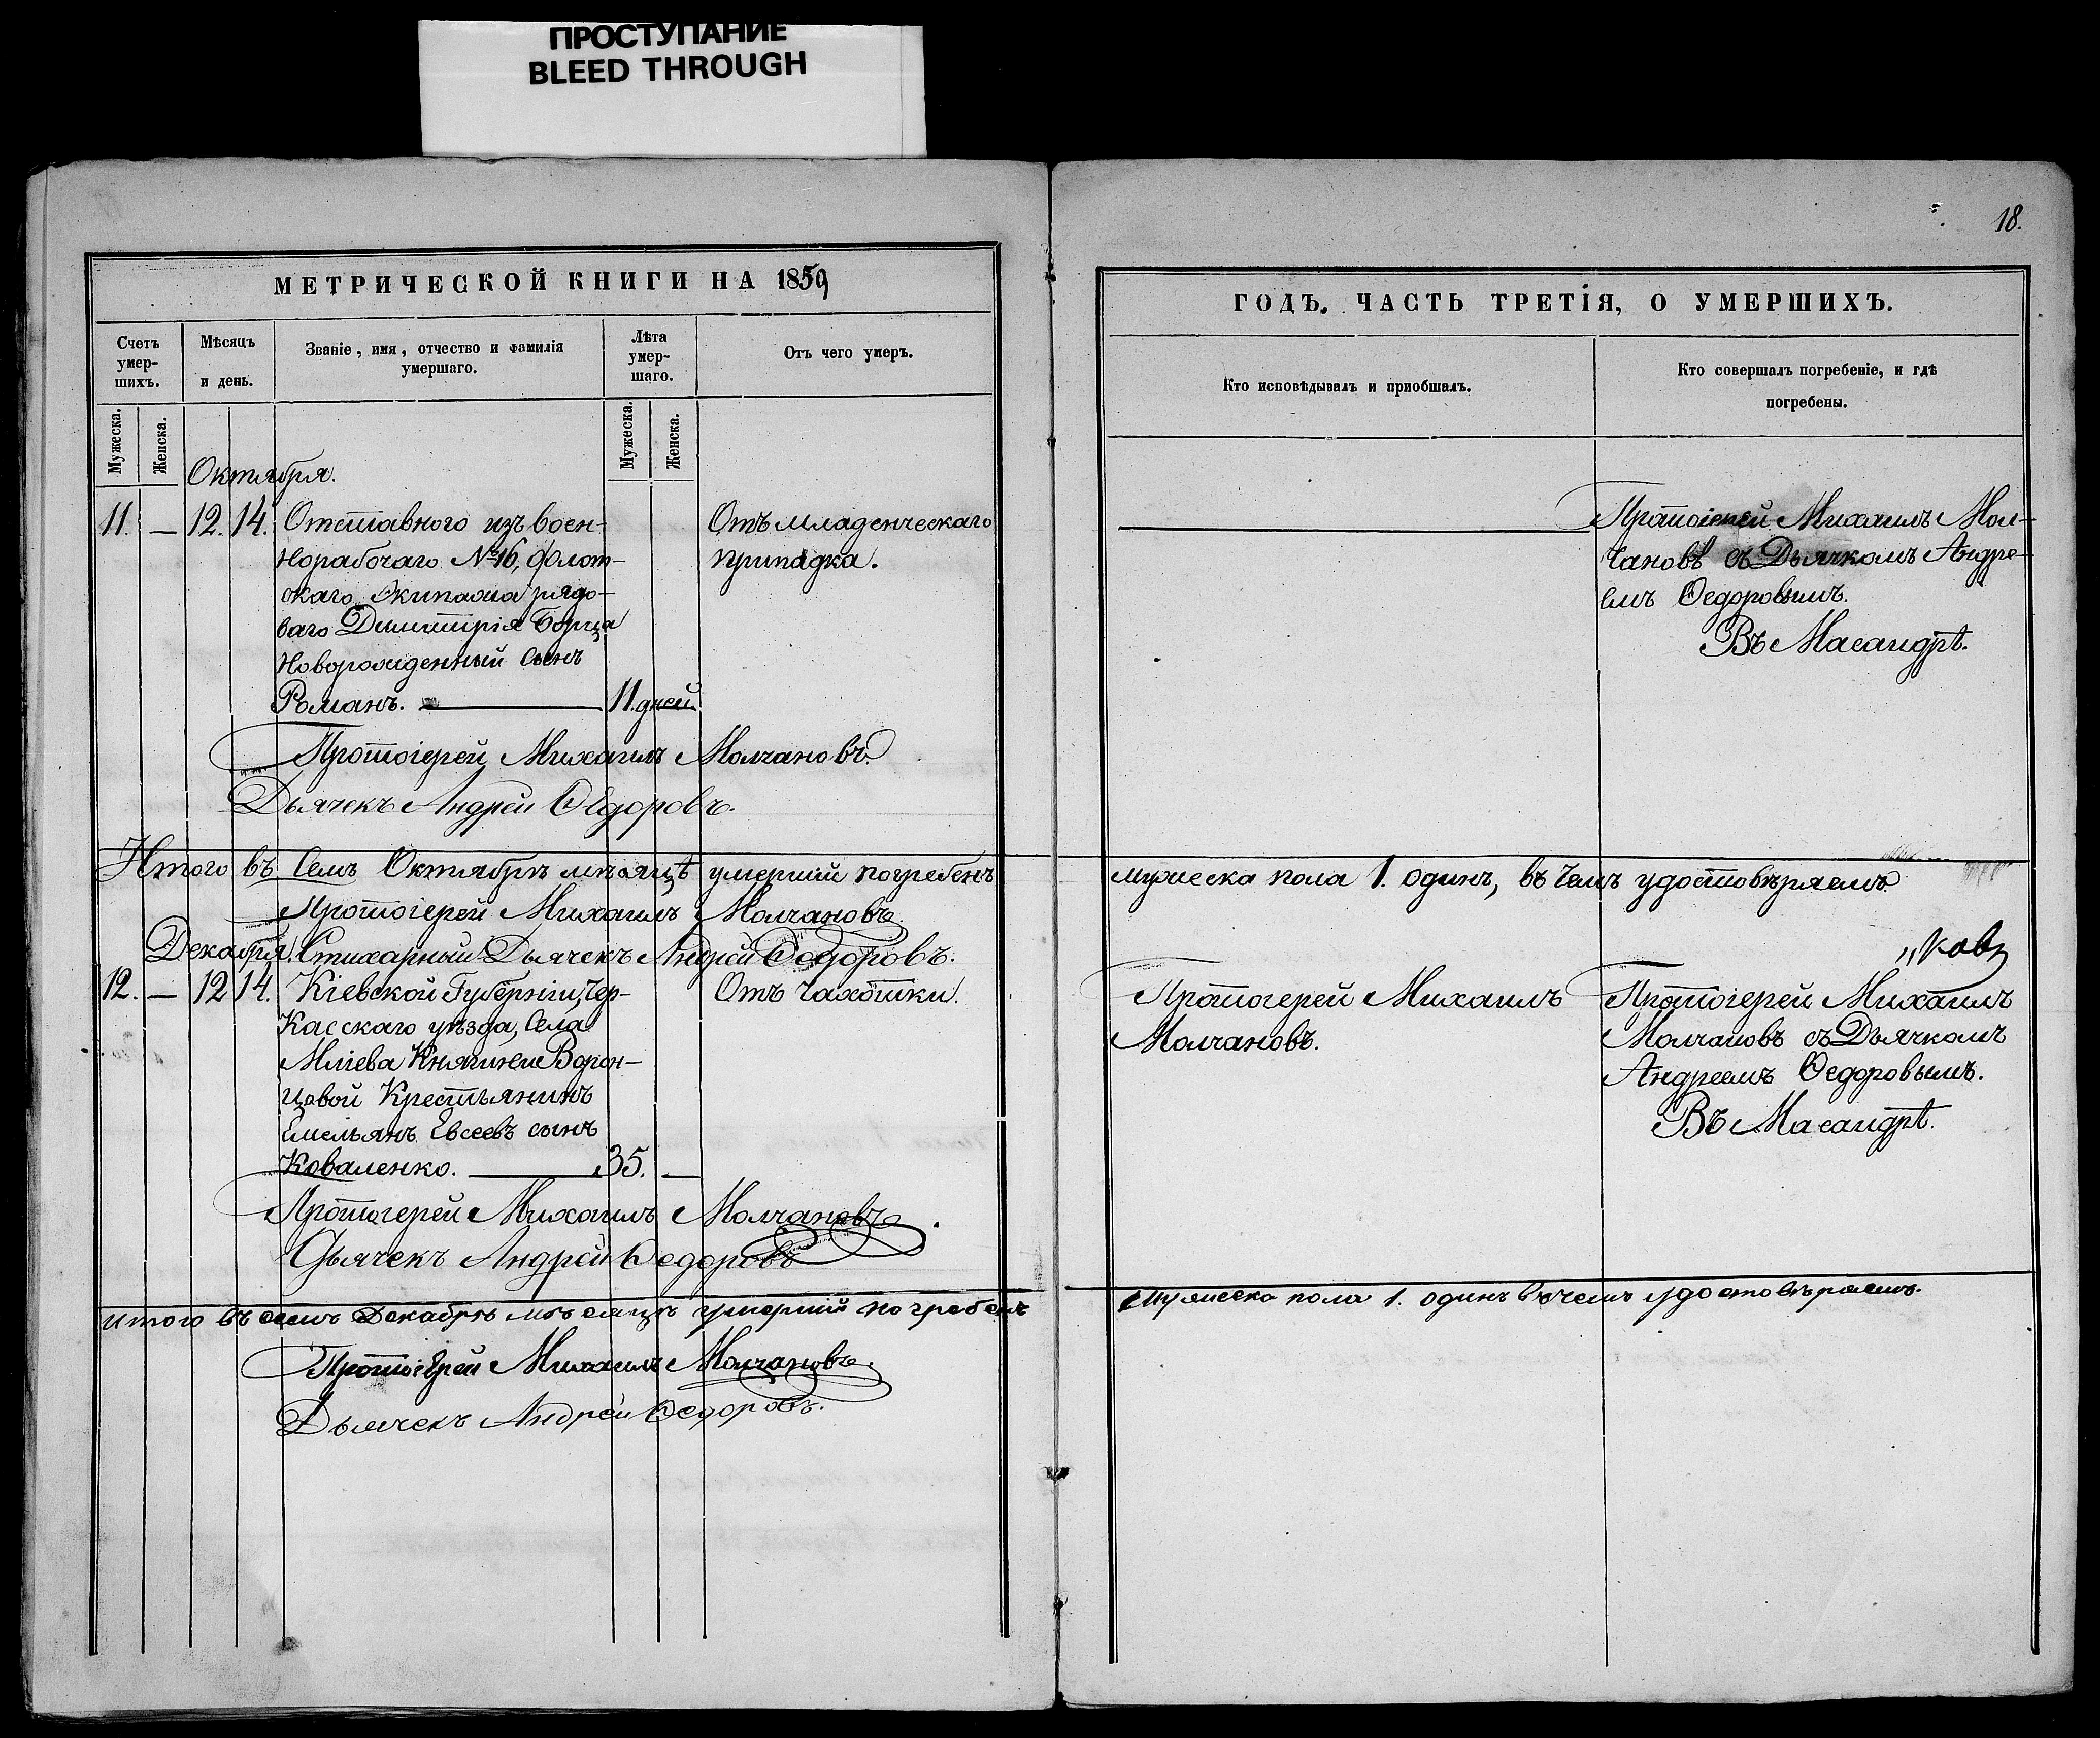 ПРОСТУПАНИЕ
BLEED THROUGH
МЕТРИЧЕСКОЙ КНИГИ НА 1859
Счетъ умер-шихъ.
Мѣсяцъ и день.
Званіе, имя, отчество и фамилія умершаго.
Лѣта умер-шаго.
Отъ чего умеръ.
Мужеска.
Женска.
Мужеска.
Женска.
Октября.
11. — 12. 14. Отставного изъ воен-
норабочаго №16, флот-
скаго Экипажа рядо-
ваго Димитрія Борца
новорожденный сынъ
Романъ. — 11. дней
Отъ младенческаго
припадка.
Протоіерей Михаилъ Молчановъ
Дьячекъ Андрей Ѳедоровъ.
Итого въ семъ Октябрѣ мѣсяцѣ умершій погребенъ
Протоіерей Михаилъ Молчановъ
Декабря. Стихарный Дьячекъ Андрей Ѳедоровъ.
12. — 12 14. Кіевской Губерніи, Чер-
касскаго уѣзда, села
Мліева Княгини Ворон-
цовой Крестьянинъ
Емельянъ Евсеевъ сынъ
Коваленко. — 35. —
Отъ чахотки.
Протоіерей Михаилъ Молчановъ
Дьячекъ Андрей Ѳедоровъ
Итого въ семъ Декабрѣ мѣсяцѣ умершій погребенъ
Протоіерей Михаилъ Молчановъ
Дьячекъ Андрей Ѳедоровъ.
18.
ГОДЪ. ЧАСТЬ ТРЕТІЯ, О УМЕРШИХЪ.
Кто исповѣдывалъ и пріобщалъ.
Кто совершалъ погребеніе, и гдѣ
погребены.
Протоіерей Михаилъ Мол-
чановъ съ Дьячкомъ Андре-
емъ Ѳедоровымъ.
Въ Масандрѣ.
мужеска пола 1. одинъ, въ чемъ удостовѣряемъ.
„ковъ
Протоіерей Михаилъ
Молчановъ.
Протоіерей Михаилъ
Молчановъ съ Дьячкомъ
Андреемъ Ѳедоровымъ.
Въ Масандрѣ.
мужеска пола 1. одинъ въ чемъ удостовѣряемъ.